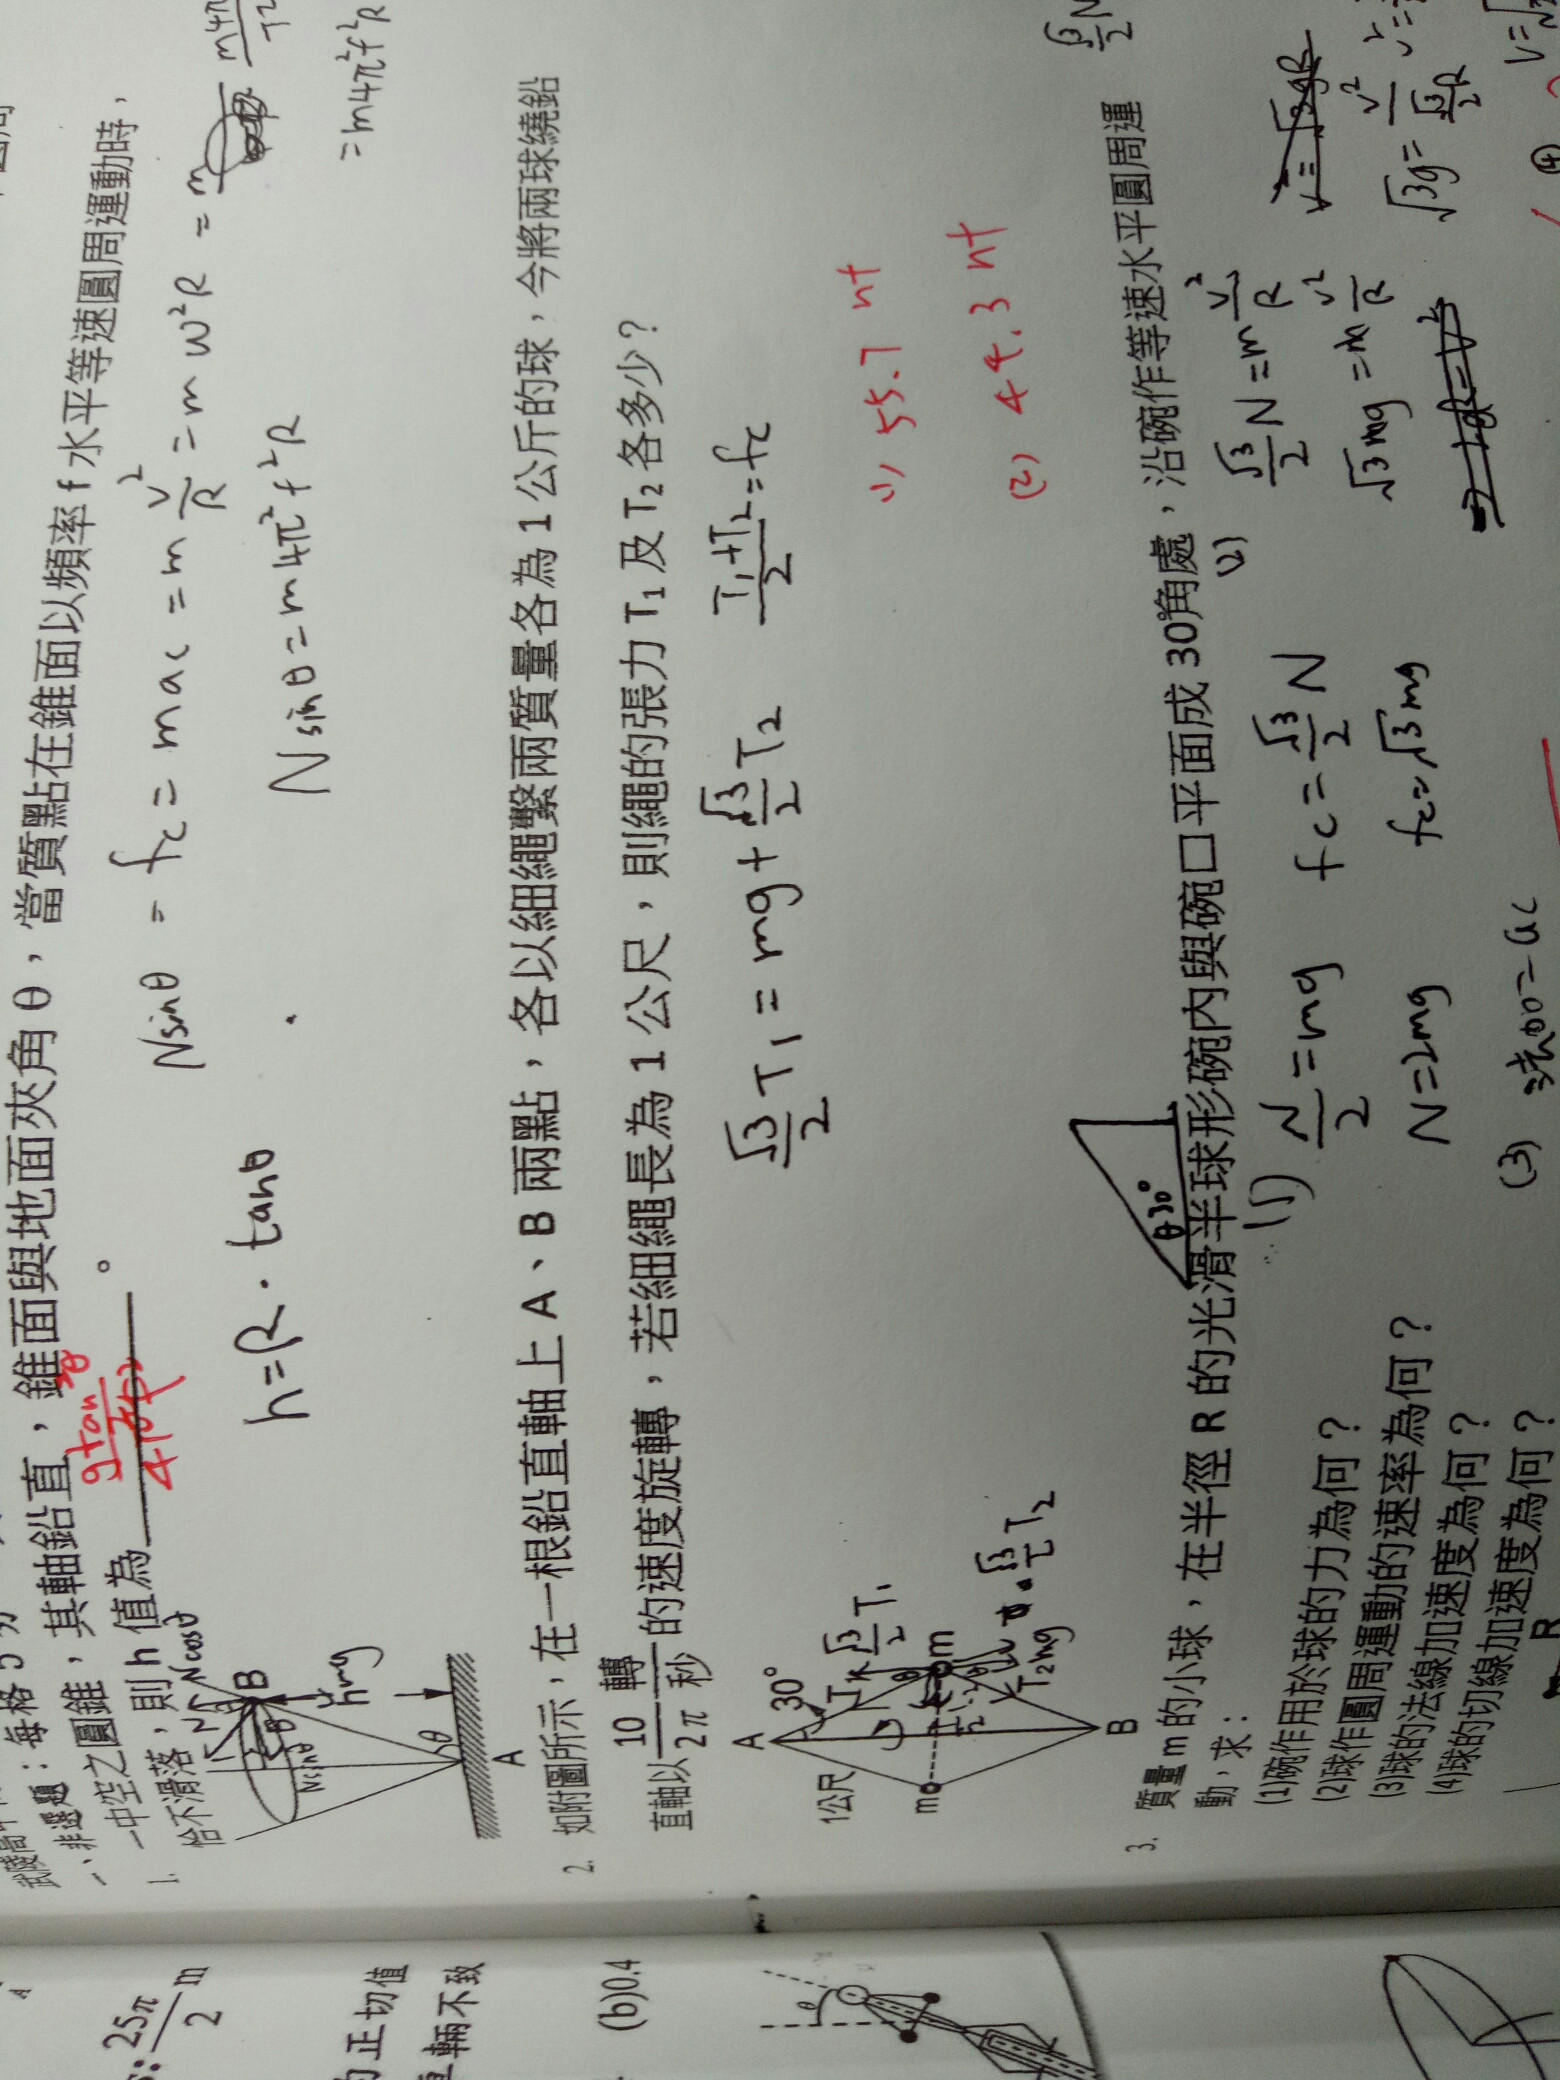 一、非選題：每格5分
1. 一中空之圓錐，其軸鉛直，錐面與地面夾角θ，當質點在錐面以頻率f水平等速圓周運動時，
恰不滑落，則h值為 。
gtan²θ
4π²f²
Nsinθ = fc = mac = m v²/R = mω²R = m
m4π
T2
= m4π²f²R
Nsinθ = m4π²f²R
h=R·tanθ
N
Ncosθ
B
mg
h
θ
Nsinθ
θ
A
2. 如附圖所示，在一根鉛直軸上A、B兩點，各以細繩繫兩質量各為1公斤的球，今將兩球繞鉛
直軸以 10/2π 轉/秒 的速度旋轉，若細繩長為1公尺，則繩的張力T₁及T₂各多少？
√3/2 T₁ = mg + √3/2 T₂
(T₁+T₂)/2 = fc
(1) 55.7 nt
(2) 44.3 nt
A
30°
1公尺
T₁
√3/2 T₁
m
m
T₂
mg
√3/2 T₂
B
3. 質量m的小球，在半徑R的光滑半球形碗內與碗口平面成30角處，沿碗作等速水平圓周運
動，求：
(1)碗作用於球的力為何？
(2)球作圓周運動的速率為何？
(3)球的法線加速度為何？
(4)球的切線加速度為何？
θ 30°
(1) N/2 = mg
fc = √3/2 N
N=2mg
fc=√3mg
(2) √3/2 N = m v²/R
√3mg = m v²/R
√3/2 N
√3g = v²/(√3/2 R)
(3) 法加=ac
(4)
R
25π/2 m
的正切值
車輛不致
(b)0.4
θ